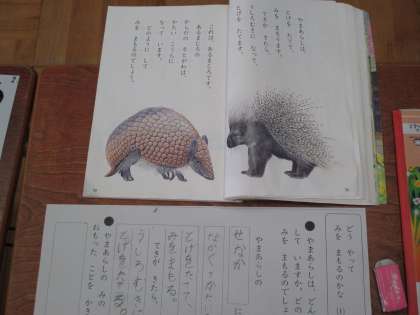 やまあらしは、
とげを たてて、
みを まもります。
てきが きたら、
うしろむきに なって、
とげを たてます。
これは、あるまじろです。
あるまじろの
からだの そとがわは、
かたい こうらに
なって います。
どのように して
みを まもるのでしょう。
どう やって
みを まもるのかな
やまあらしは、どん
して いますか。どの
みを まもるのでしょ
やまあらしの
せなか
に
ながくてかた
とげをたてて、
みをまもる。
てきが きたら、
うしろむきに
とげをたてる。
やまあらしの みの
おもった ことを かき